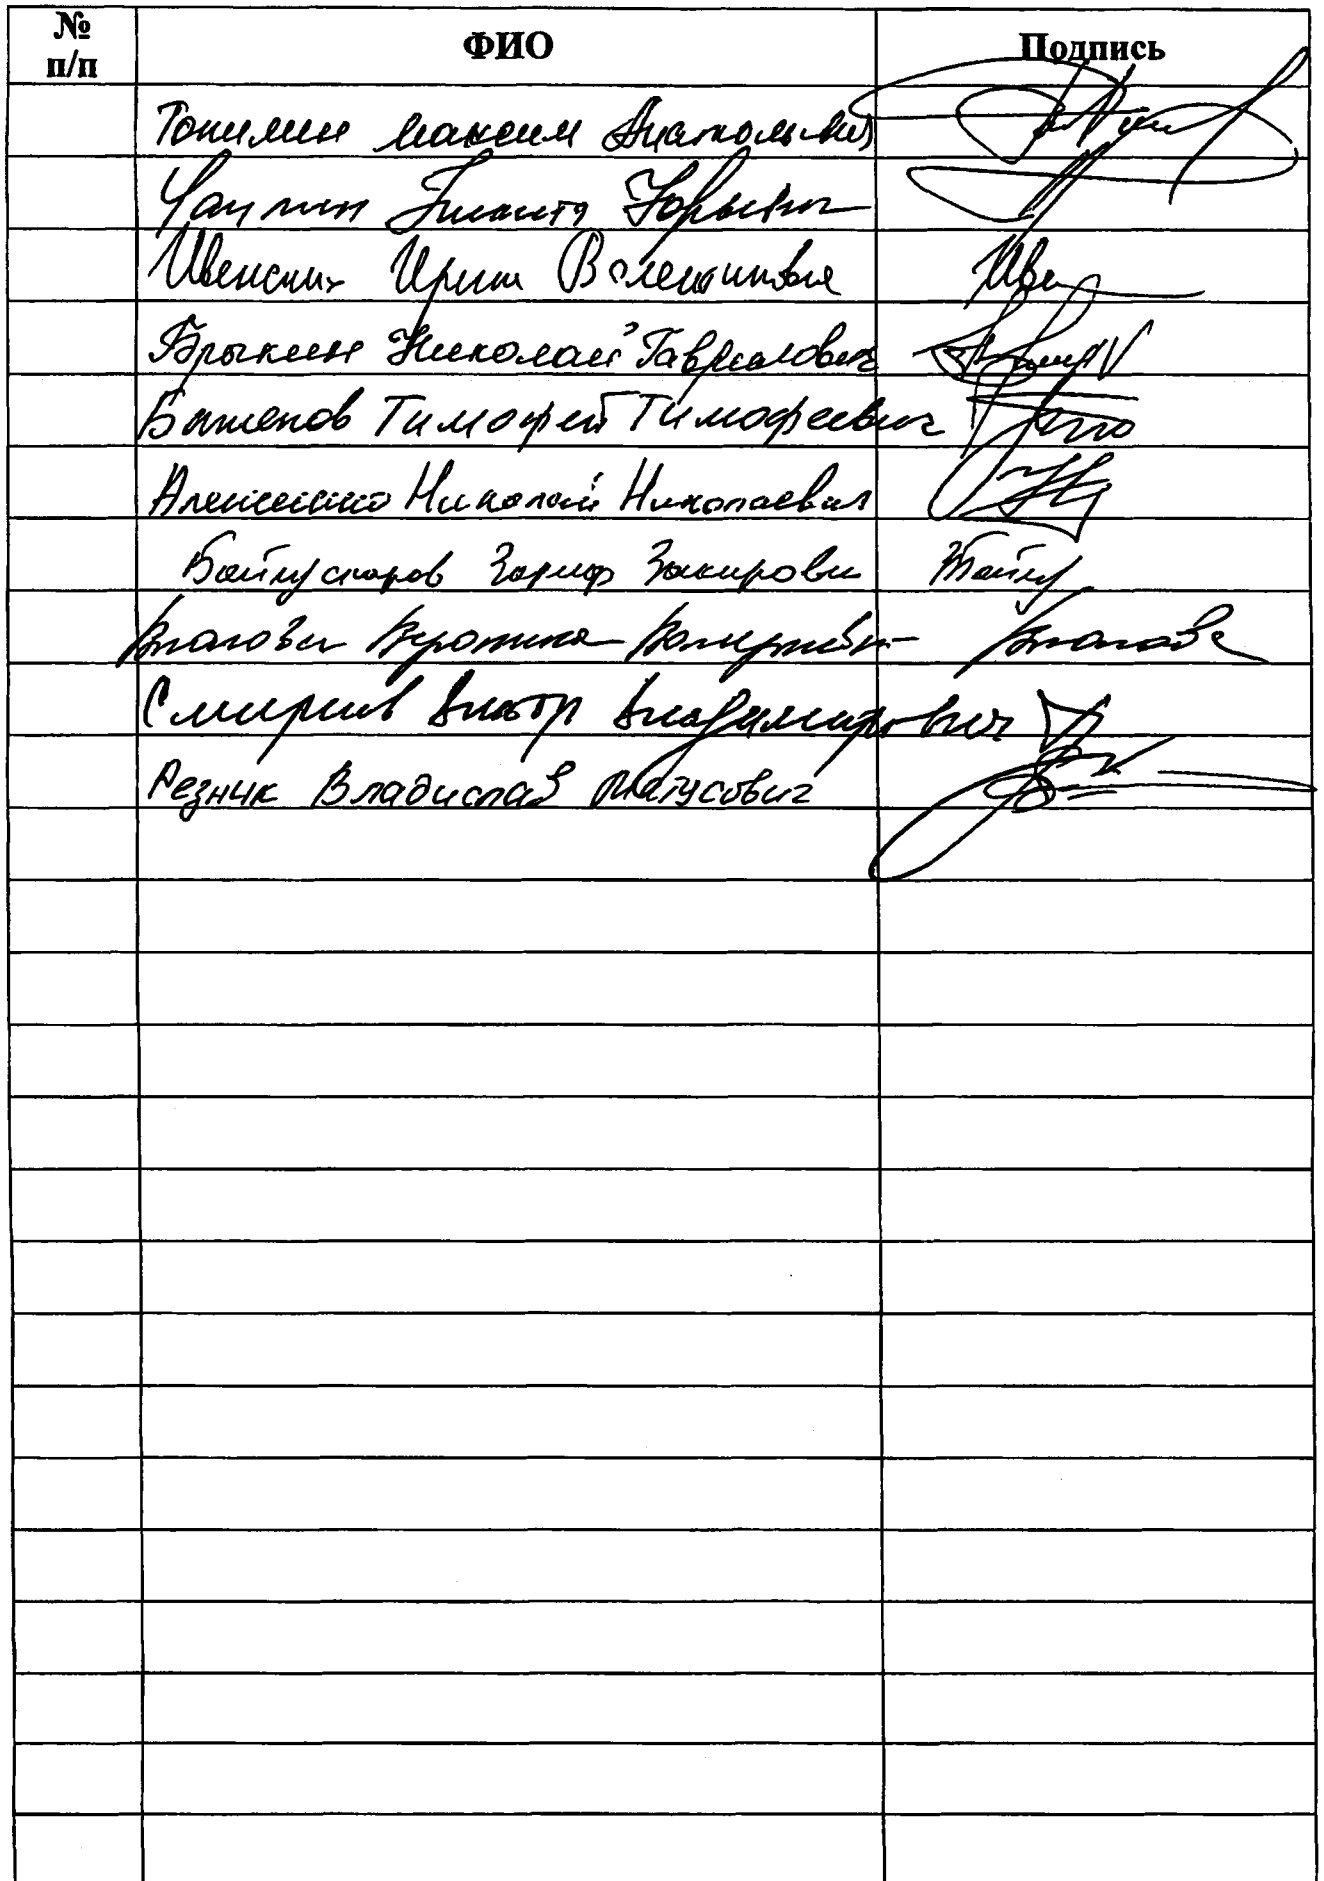 № п/п ФИО Подпись
Топилин Максим Анатольевич
Ивенских Ирина Валентиновна Иве
Брыкин Николай Гаврилович
Баженов Тимофей Тимофеевич
Николай Николаевич
Байгускаров Зариф Закирович Байгу
Власова Вероника Валерьевна Власова
Смирнов Виктор Владимирович
Резник Владислав Матусович